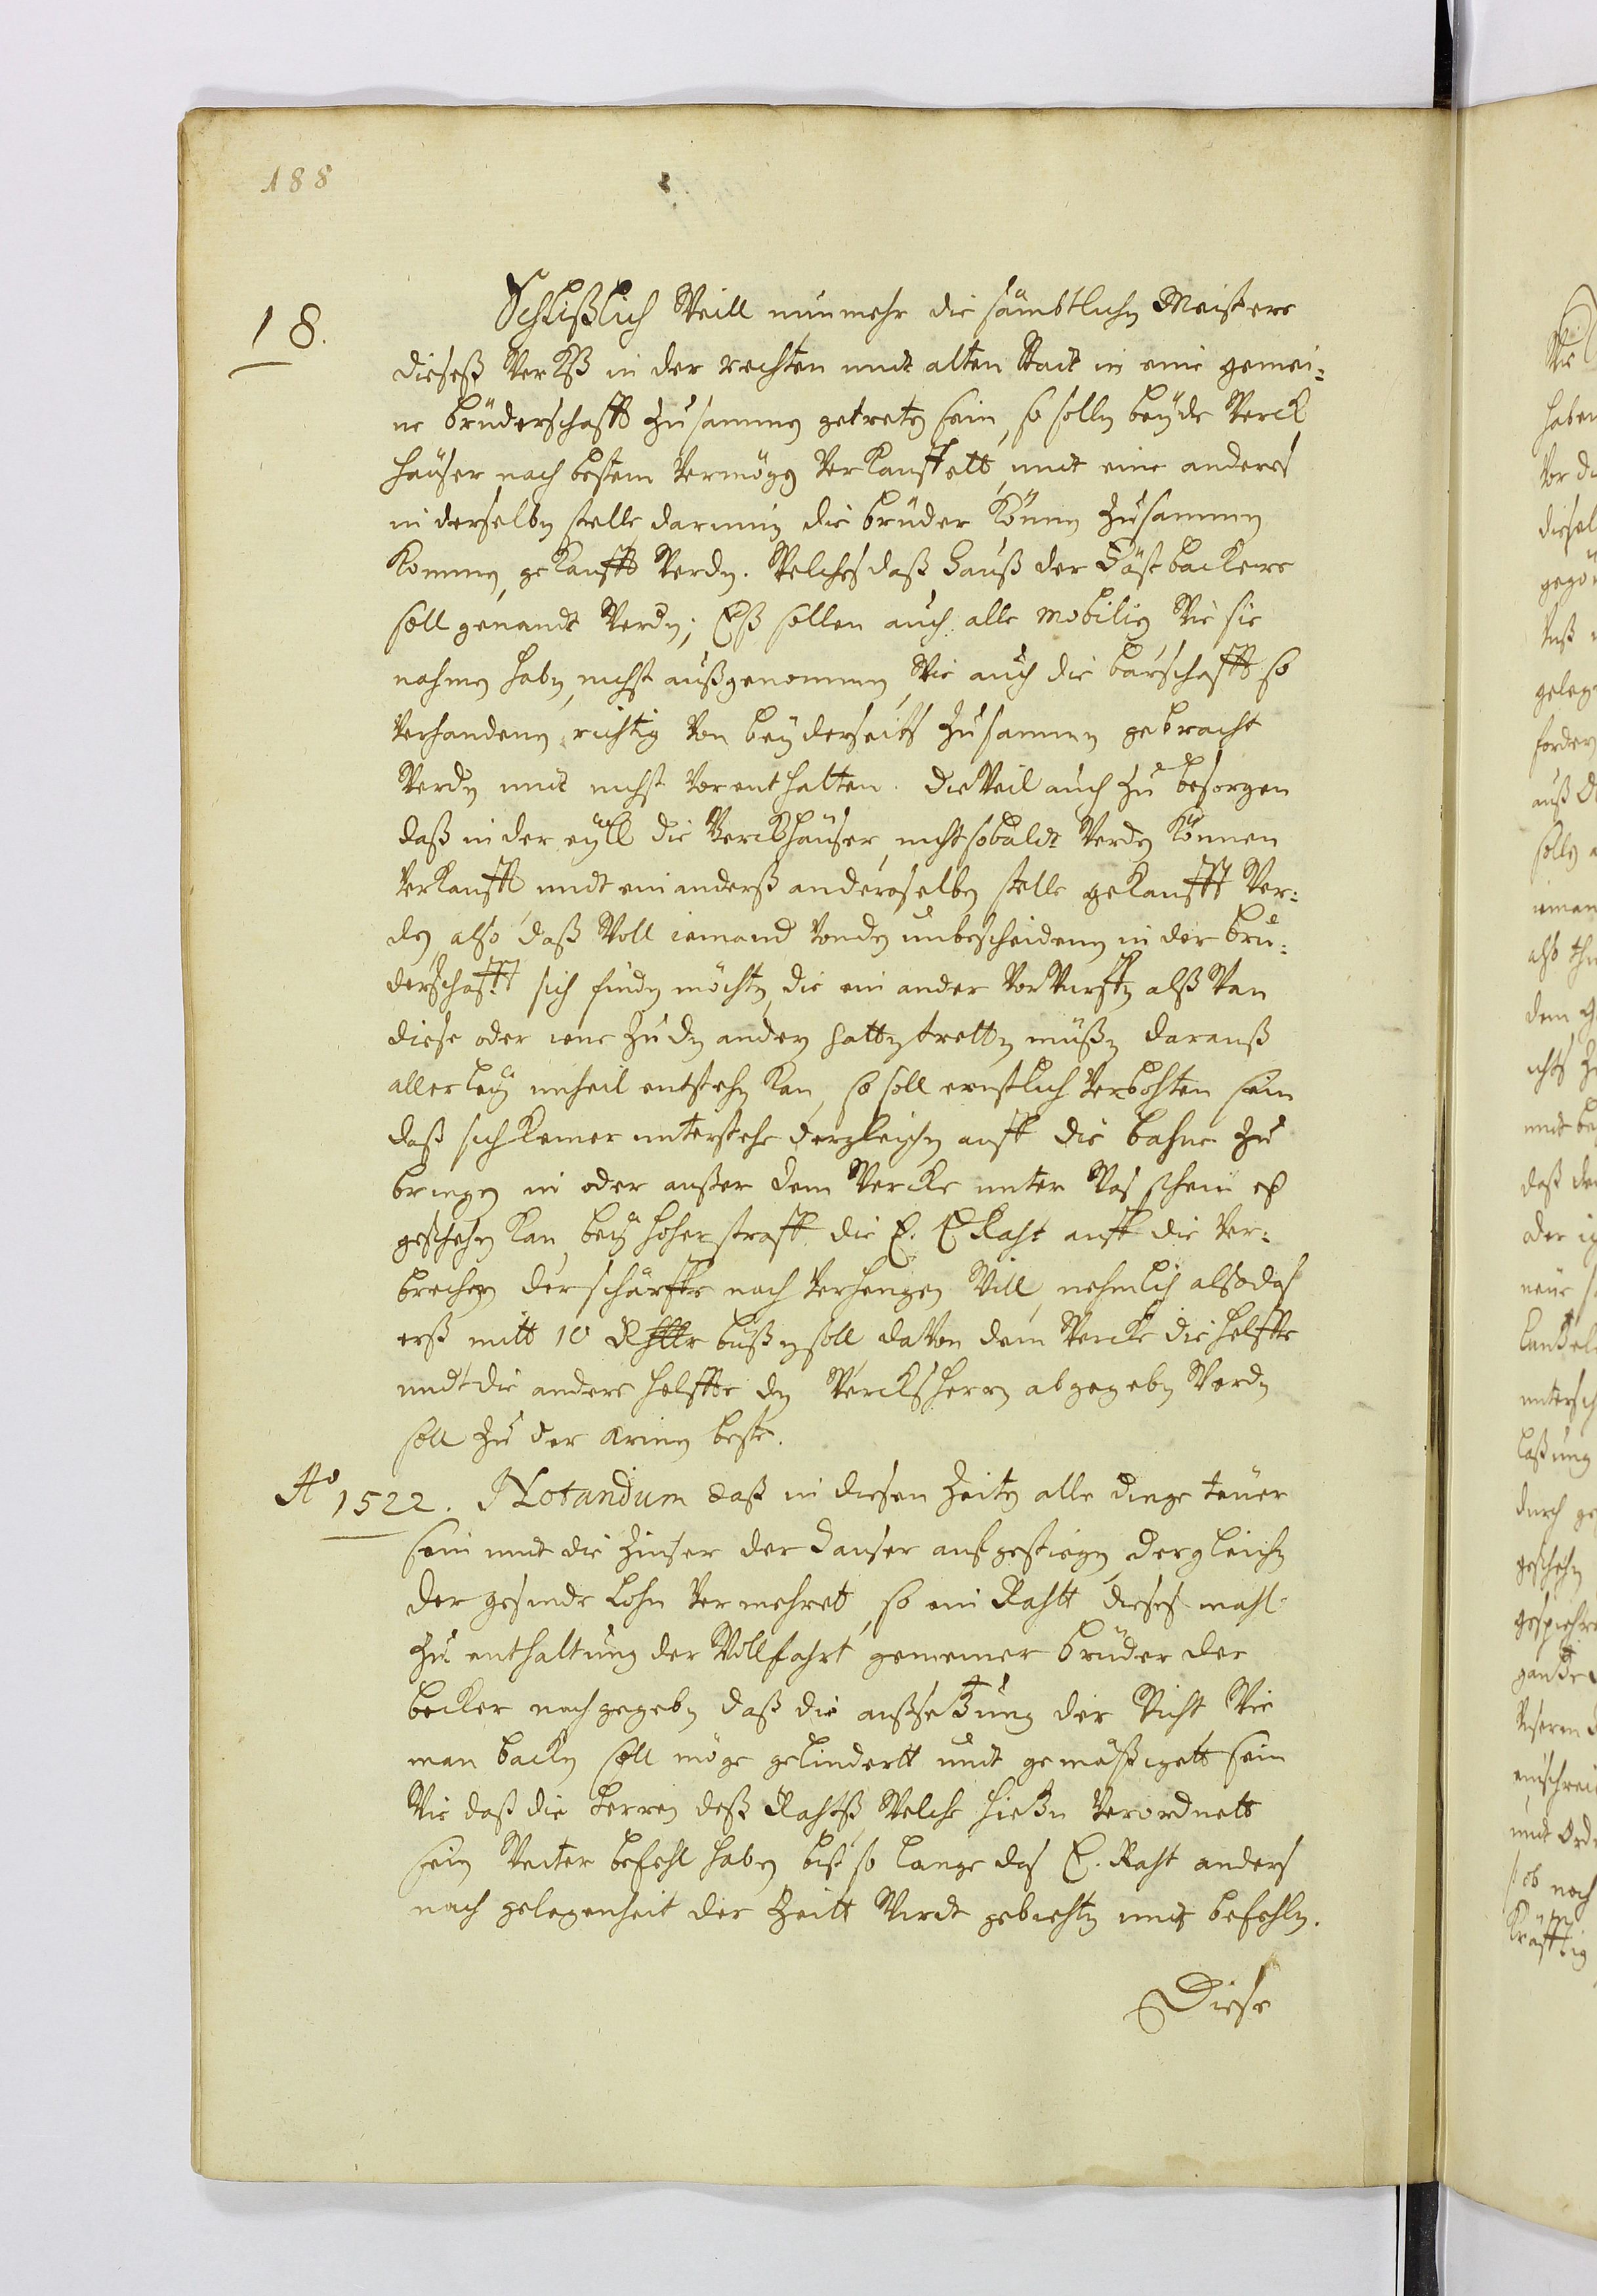 188
18.
Schlißlich Weill nunmehr die sämbtlichn Meistere
dieseß Werkß in der rechten undt alten Stadt in eine gemei=
ne brüderschafft zusammen getretn sein, so solln beyde Werck
häuser nach bestem Vermögn Verkaufft undt eine anders
in derselbn stelle darinnn die brüder Könnn zusammen
kommen, gekaufft Werdn. Welches daß Hauß der Fastbackere
soll genandt Werdn; Eß sollen auch alle mobilien Wie sie
nahmen habn nichst außgenommen, Wie auch die barschafft so
Verhanden richtig Von beyderseits zusammen gebracht
Werdn undt nichst Vorenthalten. dieweil auch zu besorgen
daß in der eyll die Werckhäuser, nicht sobaldt Werdn Können
Verkaufft undt ein anderß an deroselbn stelle gekaufft Wer=
dn also daß Woll iemand Von dn unbescheidenen in der bru=
derschafft sich findn möchtn die ein ander VorWurffn alß Wan
diese oder iene zu dn andern hattn trettn müßn darauß
allerley unheil entstehn Kan, so soll ernstlich Verbohten sein
daß sich keiner unterstehe dergleichn auff die bahne zu
bringen in oder außer dem Wercke unter Was schein eß
geschehn kan, bey hoher straff die E. E Raht auff die Ver=
brecher der schärffe nach Verhengen Will, nehmlich also daß
erß mitt 10 Rthlr bußn soll daVon dem Wercke die helffte
undt die andere helffte dn Wercksherrn abgegebn Werdn
soll zu der armen beste.
Aº 1522. Notandum daß in diesen Zeitn alle dinge teuer
sein undt die Zinser der Hauser aufgestiegn dergleichn
der gesinde Lohn Vermehret, so ein Rahtt dieses mahl
zu enthaltung der Wollfahrt gemeiner bruder der
becker nachgegebn daß die außsetzung der Wicht Wie
man backn soll möge gelindertt undt gemäßigett sein
Wie daß die Herren deß Rahtß Welche hiezu Verordnett
sein Weiter befehl habn biß so lange das E. Raht anders
nach gelegenheit der Zeitt Wirdt gebiehtn undt befehln.
Diese